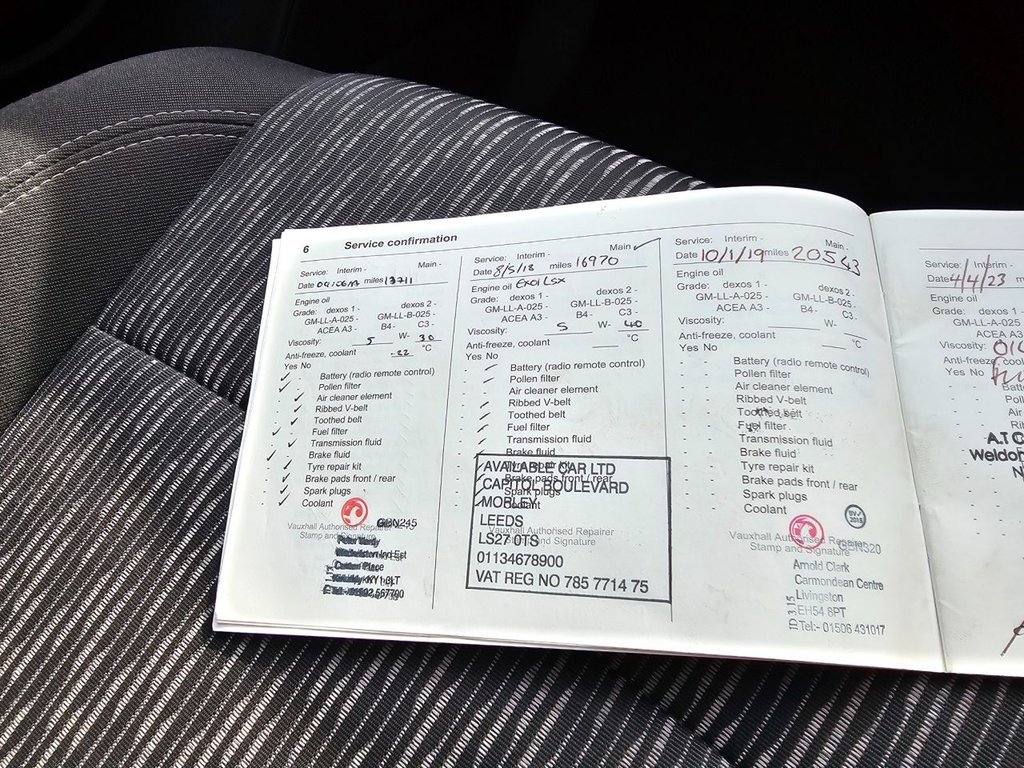 6 Service confirmation
Service: Interim - Main -
Date miles 13711
Engine oil
Grade: dexos 1 - dexos 2 -
GM-LL-A-025 - GM-LL-B-025 -
ACEA A3 - B4 - C3 -
Viscosity: 5 W- 30
Anti-freeze, coolant -22 °C
Yes No
Battery (radio remote control)
Pollen filter
Air cleaner element
Ribbed V-belt
Toothed belt
Fuel filter
Transmission fluid
Brake fluid
Tyre repair kit
Brake pads front / rear
Spark plugs
Coolant
GBN245
Vauxhall Authorised Repairer
Stamp and Signature
Service: Interim - Main ✓
Date 8/5/18 miles 16970
Engine oil
Grade: dexos 1 - dexos 2 -
GM-LL-A-025 - GM-LL-B-025 -
ACEA A3 - B4 - C3 -
Viscosity: 5 W- 40
Anti-freeze, coolant °C
Yes No
Battery (radio remote control)
Pollen filter
Air cleaner element
Ribbed V-belt
Toothed belt
Fuel filter
Transmission fluid
Brake fluid
Tyre repair kit
Brake pads front / rear
Spark plugs
Coolant
Vauxhall Authorised Repairer
Stamp and Signature
AVAILABLE CAR LTD
CAPITOL BOULEVARD
MORLEY
LEEDS
LS27 0TS
01134678900
VAT REG NO 785 7714 75
Service: Interim - Main -
Date 10/1/19 miles 20543
Engine oil
Grade: dexos 1 - dexos 2 -
GM-LL-A-025 - GM-LL-B-025 -
ACEA A3 - B4 - C3 -
Viscosity: W-
Anti-freeze, coolant °C
Yes No
Battery (radio remote control)
Pollen filter
Air cleaner element
Ribbed V-belt
Toothed belt
Fuel filter
Transmission fluid
Brake fluid
Tyre repair kit
Brake pads front / rear
Spark plugs
Coolant
Vauxhall Authorised Repairer
Stamp and Signature
GBN520
Arnold Clark
Carmondean Centre
Livingston
EH54 8PT
Tel:- 01506 431017
Service: Interim -
Date 4/4/23 miles
Engine oil
Grade: dexos 1 -
GM-LL-A-025 -
ACEA A3 -
Viscosity:
Anti-freeze, cool
Yes No
A.T.C